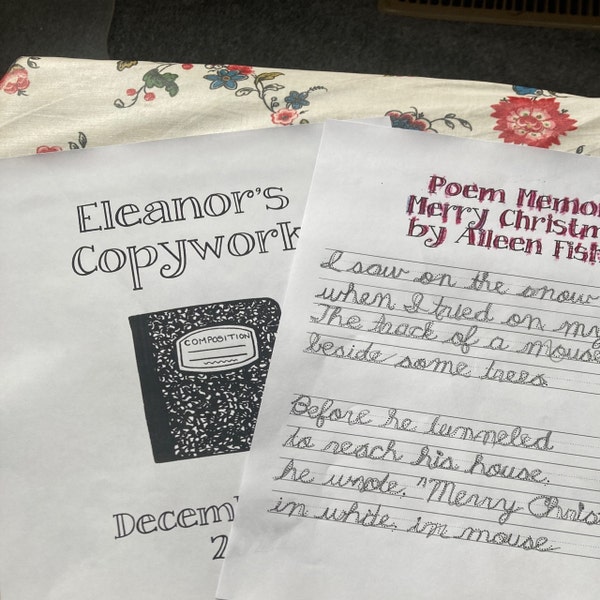 Eleanor's
Copywork
COMPOSITION
Decem
2
Poem Memo
Merry Christm
by Aileen Fis
I saw on the snow
when I tried on my
The track of a mouse
beside some trees
Before he tunneled
to reach his house.
he wrote, "Merry Chris
in white, in mouse